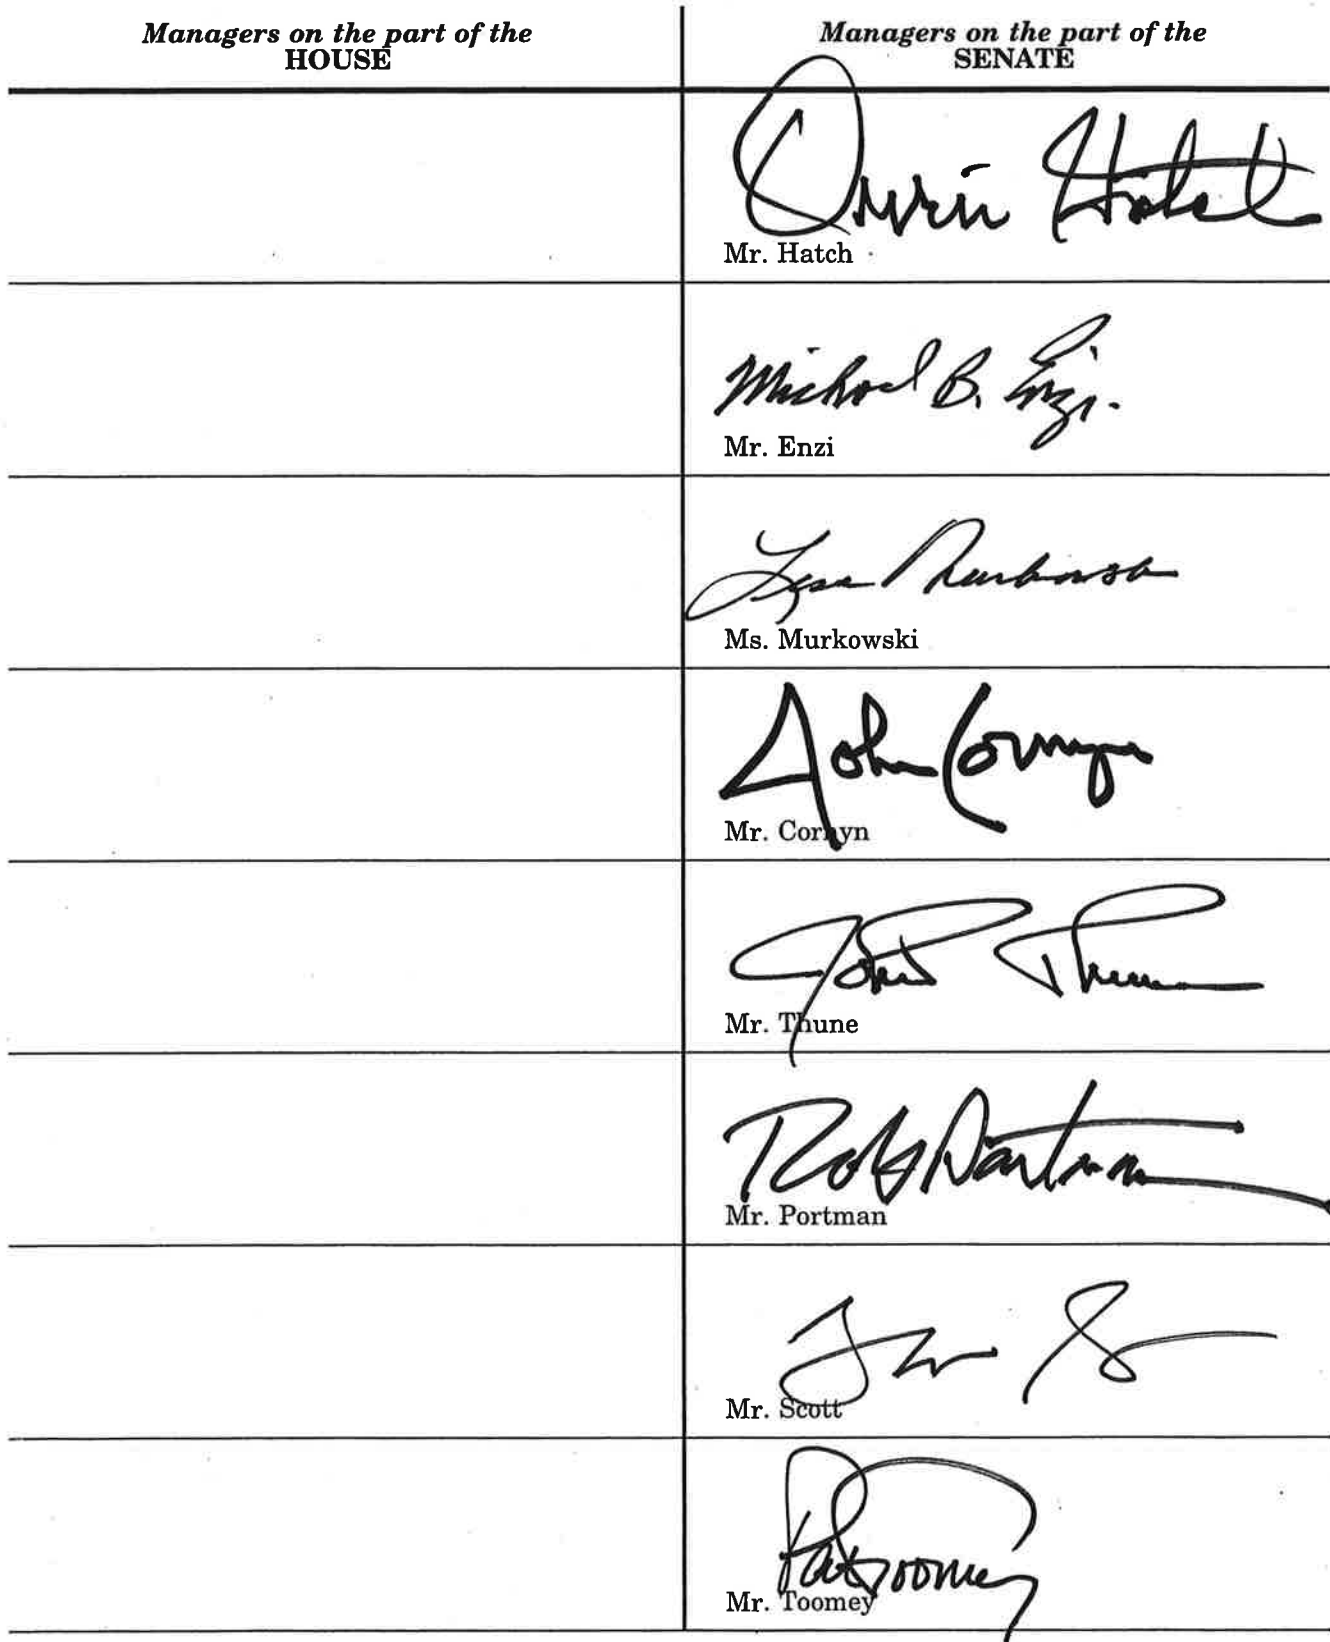 Managers on the part of the
HOUSE
Managers on the part of the
SENATE
Orrin Hatch
Mr. Hatch
Michael B. Enzi
Mr. Enzi
Lisa Murkowski
Ms. Murkowski
John Cornyn
Mr. Cornyn
John Thune
Mr. Thune
Rob Portman
Mr. Portman
Tim Scott
Mr. Scott
Pat Toomey
Mr. Toomey